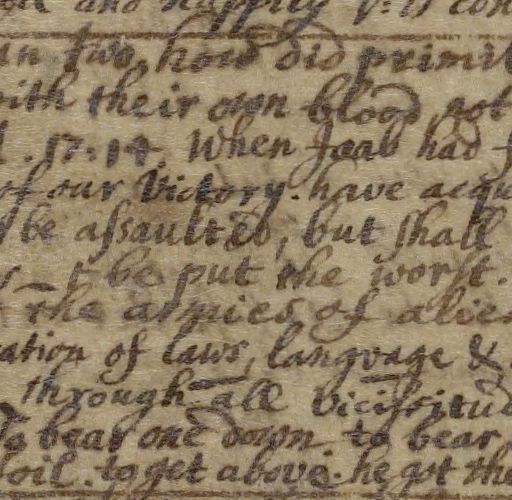 and happily
un two, how did primit
with their own blood not
. 57:14. When Joab had
of our Victory. have acqu
be assaulted, but shall
be put the worst.
the armies of alie
ration of laws, language &
through all vicissitud
To bear one down to bear
foil. to get above. he got the